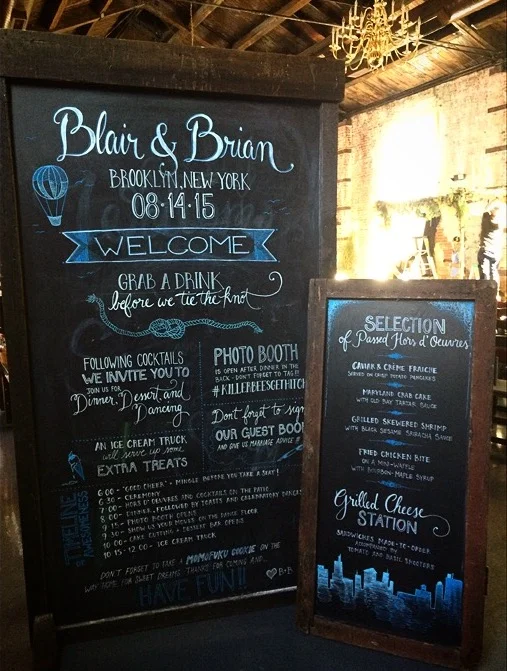 Blair & Brian
BROOKLYN, NEW YORK
08·14·15
WELCOME
GRAB A DRINK
before we tie the knot
FOLLOWING COCKTAILS
WE INVITE YOU TO
JOIN US FOR
Dinner, Dessert and
Dancing
AN ICE CREAM TRUCK
will serve up some
EXTRA TREATS
PHOTO BOOTH
IS OPEN AFTER DINNER IN THE
BACK - DON'T FORGET TO TAG IT
#KILLERBEESGETHITCH
Don't forget to sign
OUR GUEST BOOK
AND GIVE US MARRIAGE ADVICE
TIMELINE
of
AWESOMENESS
6:00 - "GOOD CHEER" - MINGLE BEFORE YOU TAKE A SEAT!
6:30 - CEREMONY
7:00 - HORS D'OEUVRES AND COCKTAILS ON THE PATIO
8:00 - DINNER, FOLLOWED BY TOASTS AND CELEBRATORY DANCES
9:15 - PHOTO BOOTH OPENS
9:30 - SHOW US YOUR MOVES ON THE DANCE FLOOR
10:00 - CAKE CUTTING + DESSERT BAR OPENS
10:15-12:00 - ICE CREAM TRUCK
DON'T FORGET TO TAKE A MOMOFUKU COOKIE ON THE
WAY HOME FOR SWEET DREAMS. THANKS FOR COMING AND...
HAVE FUN!!
B+B
SELECTION
of Passed Hors d'Oeuvres
CAVIAR & CRÈME FRAICHE
SERVED ON CRISP POTATO PANCAKES
MARYLAND CRAB CAKE
WITH OLD BAY TARTAR SAUCE
GRILLED SKEWERED SHRIMP
WITH BLACK SESAME SRIRACHA SAUCE
FRIED CHICKEN BITE
ON A MINI-WAFFLE
WITH BOURBON-MAPLE SYRUP
Grilled Cheese
STATION
SANDWICHES MADE-TO-ORDER
ACCOMPANIED BY
TOMATO AND BASIL SHOOTERS